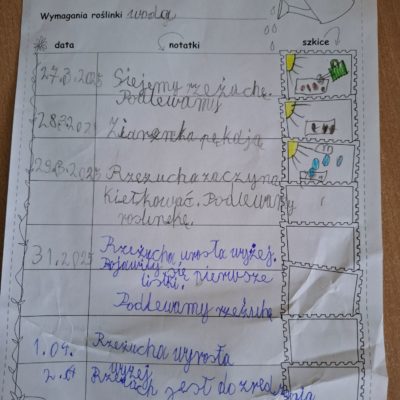 Wymagania roślinki wodą
data notatki szkice
27.3.2025 Siejemy rzeżuchę.
Podlewamy
28.3.2025 Ziarenka pękają
29.3.2025 Rzeżucha zaczyna
kiełkować. Podlewamy
roślinkę.
31.2025 Rzeżucha urosła wyżej.
Pojawiły się pierwsze
listki.
Podlewamy rzeżuchę
1.04. Rzeżucha wyrosła
wyżej
2.04 jest do